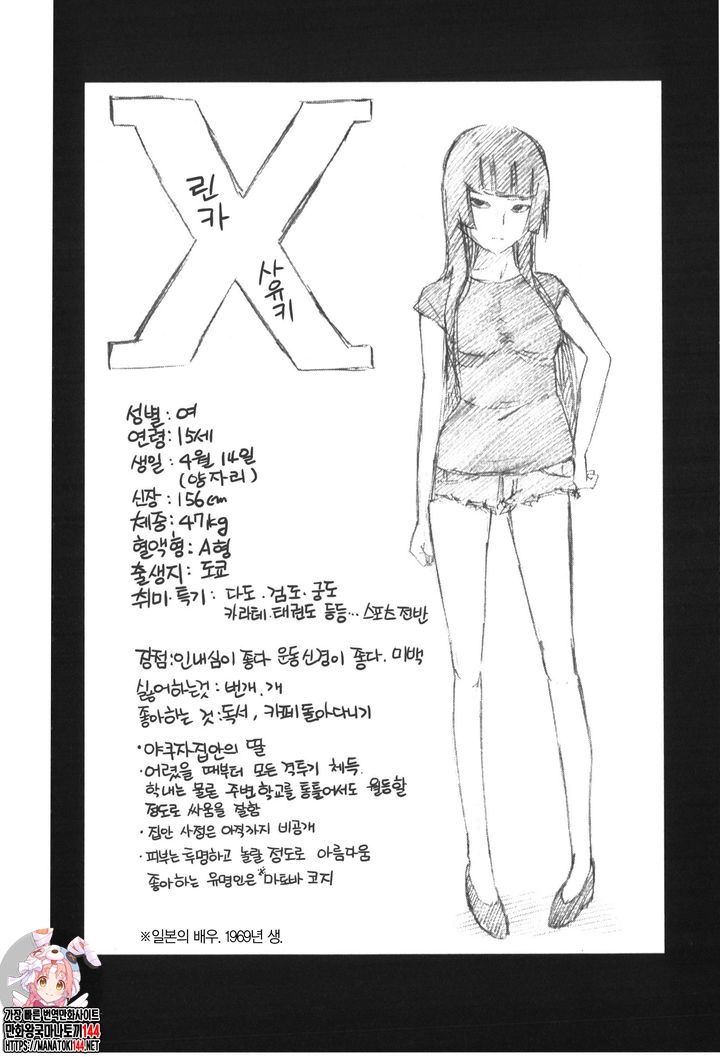 X
린카
사유키
성별 : 여
연령 : 15세
생일 : 4월 14일
(양자리)
신장 : 156cm
체중 : 47kg
혈액형 : A형
출생지 : 도쿄
취미·특기 : 다도·검도·궁도
카라테·태권도 등등… 스포츠 전반
장점 : 인내심이 좋다 운동신경이 좋다. 미백
싫어하는것 : 번개, 개
좋아하는 것 : 독서, 카페 돌아다니기
·야쿠자집안의 딸
·어렸을 때부터 모든 격투기 체득.
학내는 물론 주변 학교를 통틀어서도 월등할
정도로 싸움을 잘함
·집안 사정은 아직까지 비공개
·피부는 투명하고 놀랄 정도로 아름다움
좋아하는 유명인은 *마로바 코지
※일본의 배우. 1969년 생.
가장 빠른 번역만화사이트
만화왕국마나토끼144
HTTPS://MANATOKI144.NET